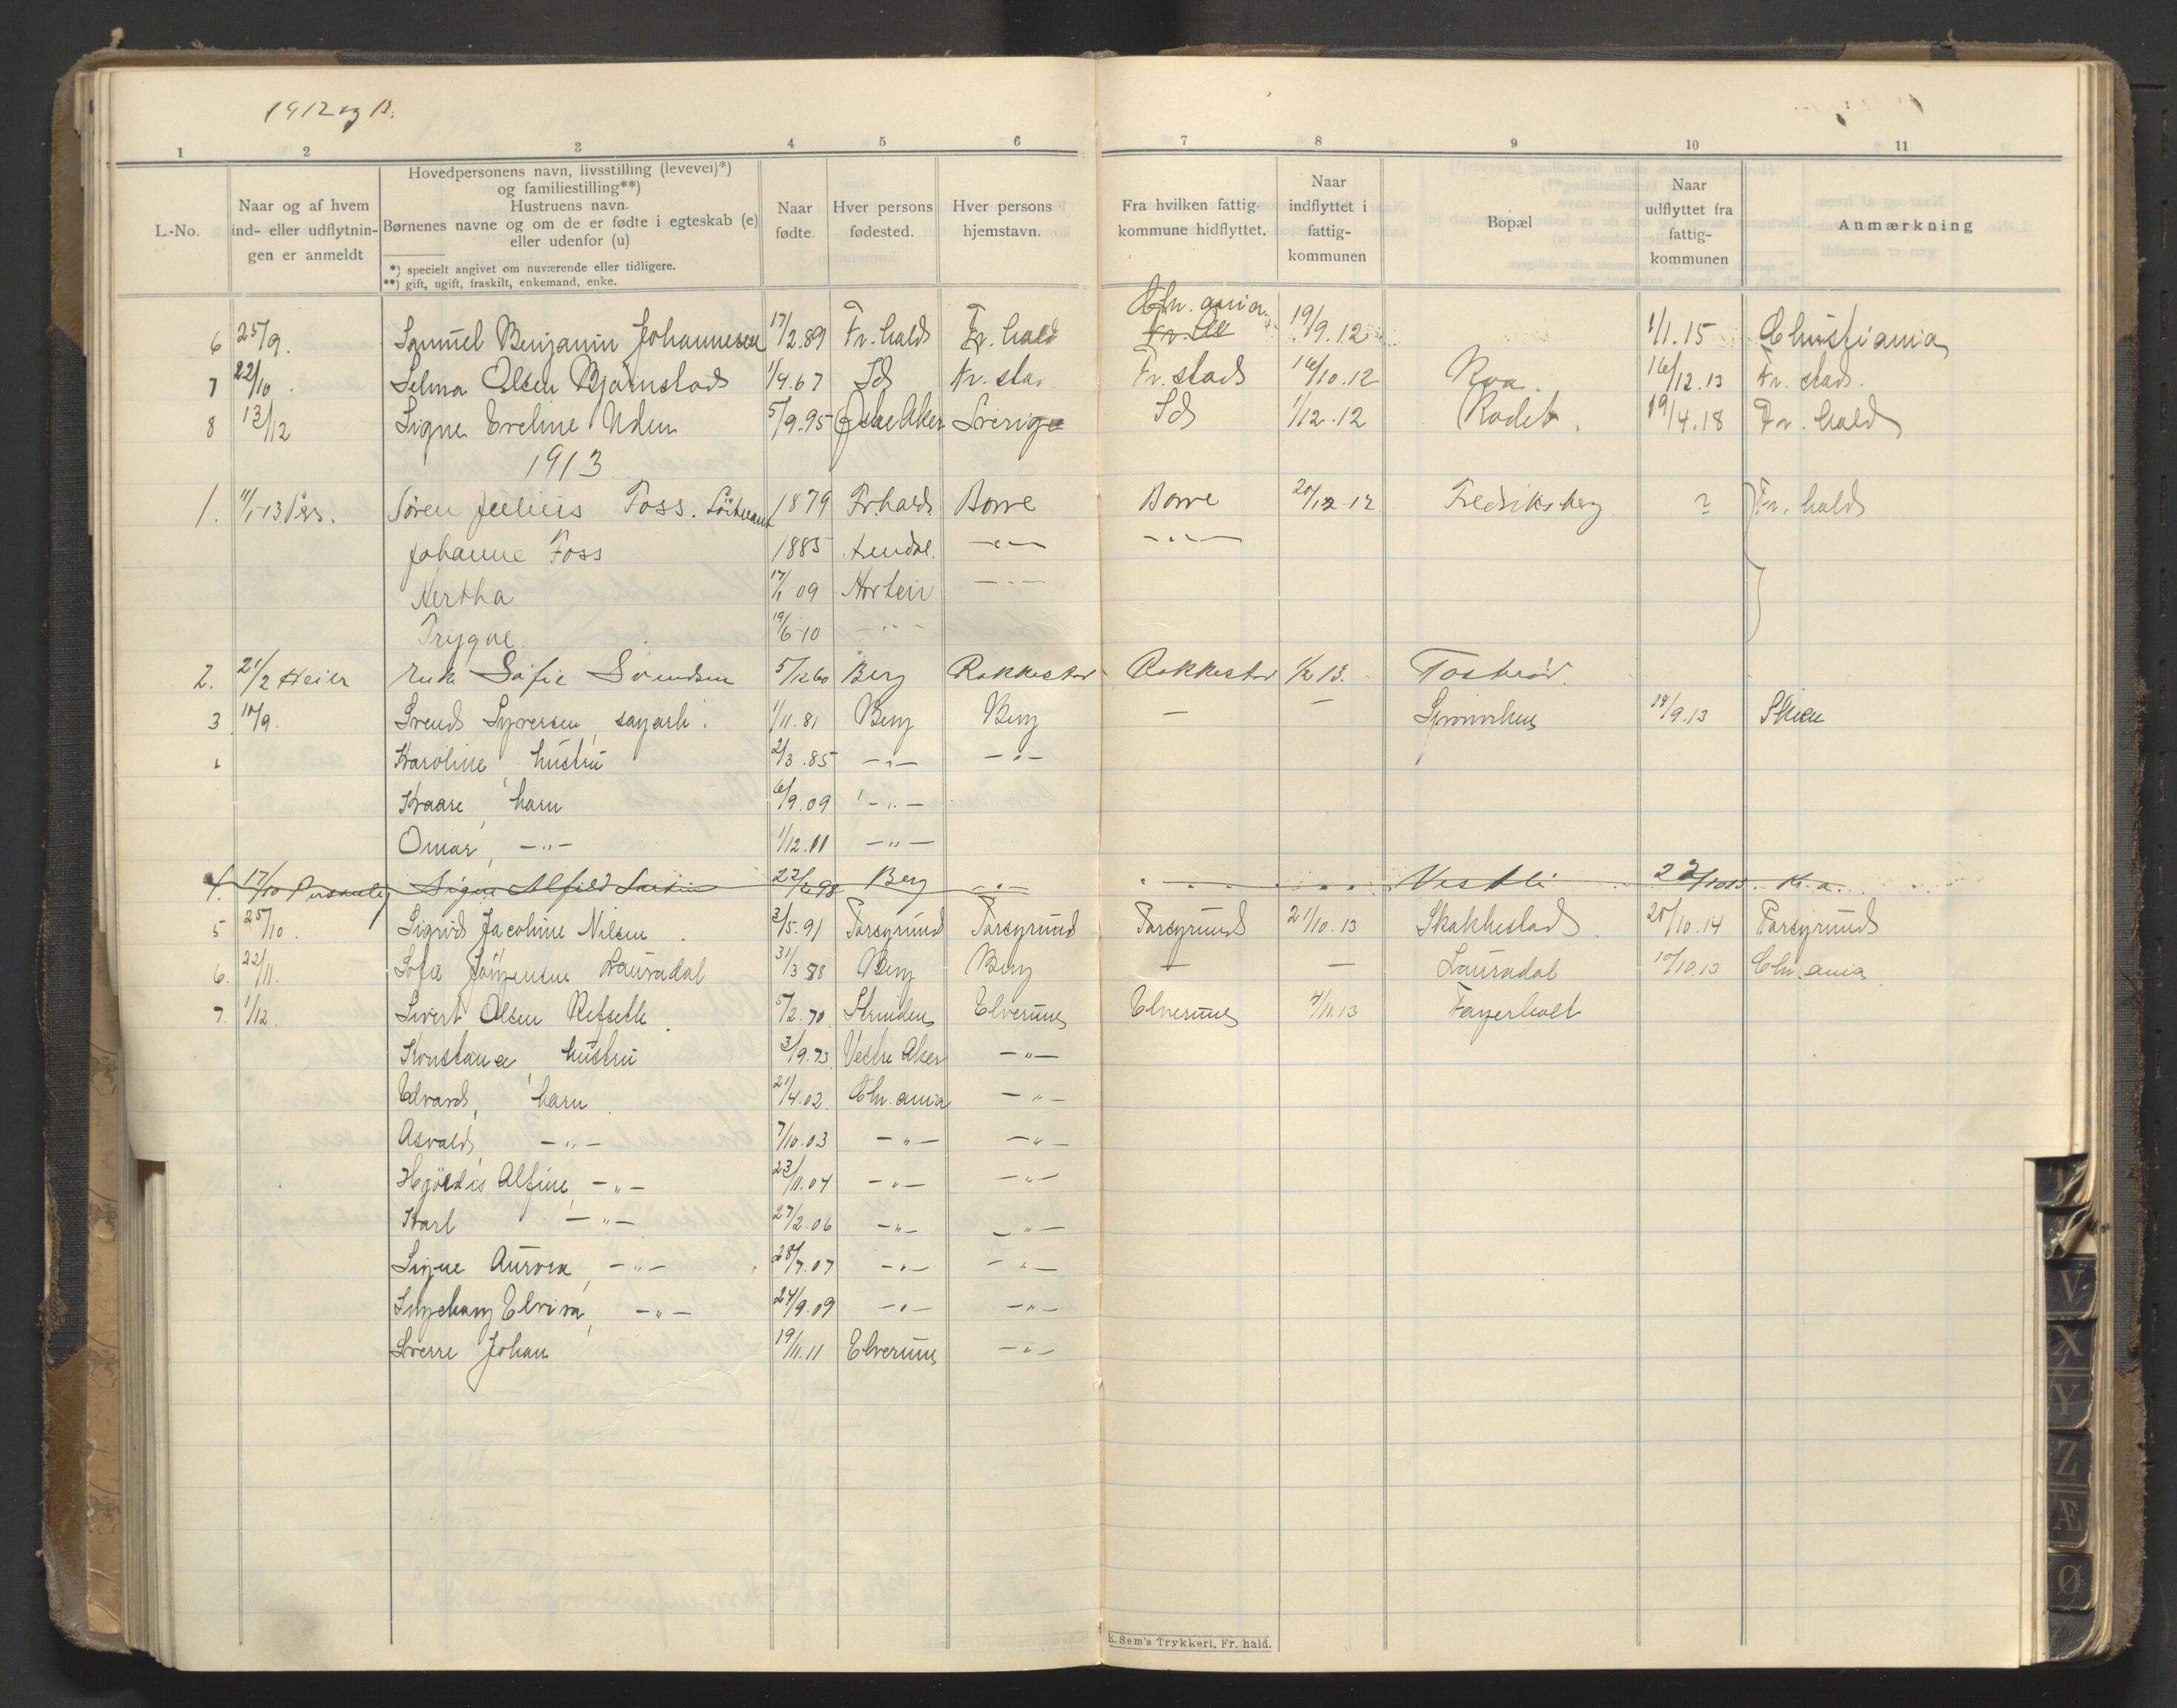 1912 og 13.
1 2 3 4 5 6 7 8 9 10 11
L.-No.
Naar og af hvem ind- eller udflytnin- gen er anmeldt
Hovedpersonens navn, livsstilling (levevei)*)
og familiestilling**)
Hustruens navn.
Børnenes navne og om de er fødte i egteskab (e)
eller udenfor (u)
*) specielt angivet om nuværende eller tidligere.
**) gift, ugift, fraskilt, enkemand, enke.
Naar fødte.
Hver persons fødested.
Hver persons hjemstavn.
Fra hvilken fattig- kommune hidflyttet.
Naar indflyttet i fattig- kommunen
Bopæl
Naar udflyttet fra fattig- kommunen
Anmærkning
6 25/9. Samuel Benjamin Johannesen 17/2.89 Fr.hald Fr.hald Chr.ania 19/9.12 1/1.15 Christiania
7 22/10. Selma Olsen Bjørnstad 1/4.67 Id Fr.stad Fr.stad 16/10.12 Roa. 16/12.13 Fr.stad.
8 13/12 Signe Eveline Uden 5/9.95 Østre Aker Sverige Id 1/12.12 Rødet. 19/4.18 Fr.hald
1913
1. 11/1-13 Pers. Søren Julius Foss. Löitnant 1879 Fr.hald Borre Borre 20/12-12 Fredriksberg ? Fr.hald
Johanne Foss 1885 Arendal. -"- -"-
Hertha 17/1 09 Horten -"-
Trygve 19/6-10 -"-
2. 21/2 Heier Enke Sofie Svendsen 5/12 60 Berg Rakkestad Rakkestad 1/2 13. Tosterød.
3 10/9. Svend Syversen, sagarb. 1/11.81 Berg Berg - - 18/9.13 Skien
Karoline, hustru 2/3.85 -"- -"-
Kaare, barn 6/9.09 -"-
Omar, -"- 1/12.11 -"-
4. 17/10 Personlig Signe Alfild 22/6 98 Berg -"- Vestli K.a.
5 25/10. Sigrid Jacobine Nilsen 3/5.91 Porsgrund Porsgrund Porsgrund 21/10.13 Skakkestad 25/10.14 Porsgrund
6. 22/11. Sofie Jörgensen Lauradal 31/3 88 Berg Berg - - Lauradal 10/10.13 Chr.ania
7. 1/12. Sivert Olsen Refseth 5/2.70 Strinden Elverum Elverum 4/11.13 Fagerholt
Konstanse, hustru 3/9.73 Vestre Aker -"-
Edvard, barn 21/4.02. Chr.ania -"-
Asvald, -"- 7/10.03 -"- -"-
Hjördis Alfine, -"- 23/11.04 -"- -"-
Karl -"- 27/2.06 -"- -"-
Signe Aurora, -"- 28/7.07 -"- -"-
Ingeborg Elvira, -"- 24/9.09 -"- -"-
Sverre Johan 19/11.11 Elverum -"-
E. Sem's Trykkeri, Fr. hald.
V
X
Y
Z
Æ
Ø